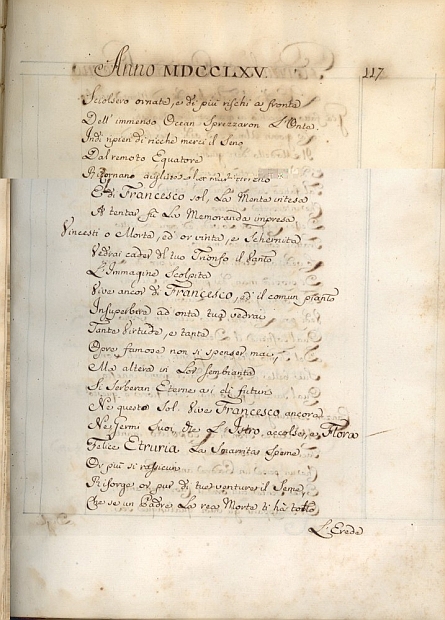 Anno MDCCLXV.
117
Sciolsero ornate, e di più rischi a fronte
Dell' immenso Ocean sprezzaron L'Onte
Indi ripien di ricche merci il Seno
Dal remoto Equatore
Ritornano
E di Francesco sol, La Mente intesa
A tentar fu La Memoranda impresa
Vincesti o Morte, ed or vinta, e Schernita
Vedrai cader del tuo Trionfo il Vanto
L'Immagine Scolpita
Vive ancor di Francesco, ed il comun pianto
Insuperbire ad onta tua vedrai
Tante Virtude, e tanta
Opre famose non si spenser mai,
Ma altera in Lor sembianta
Si Serberan Eterne a i dì futuri
Ne questo Sol. Vive Francesco ancora
Ne Germi Suoi che L'Istro, accolse, e Flora
Felice Etruria La Smarrita Speme
Or più si rassicuri
Risorge or pur di tue venture il Seme,
Che se un Padre La rea Morte ti hà tolto
L'Erede